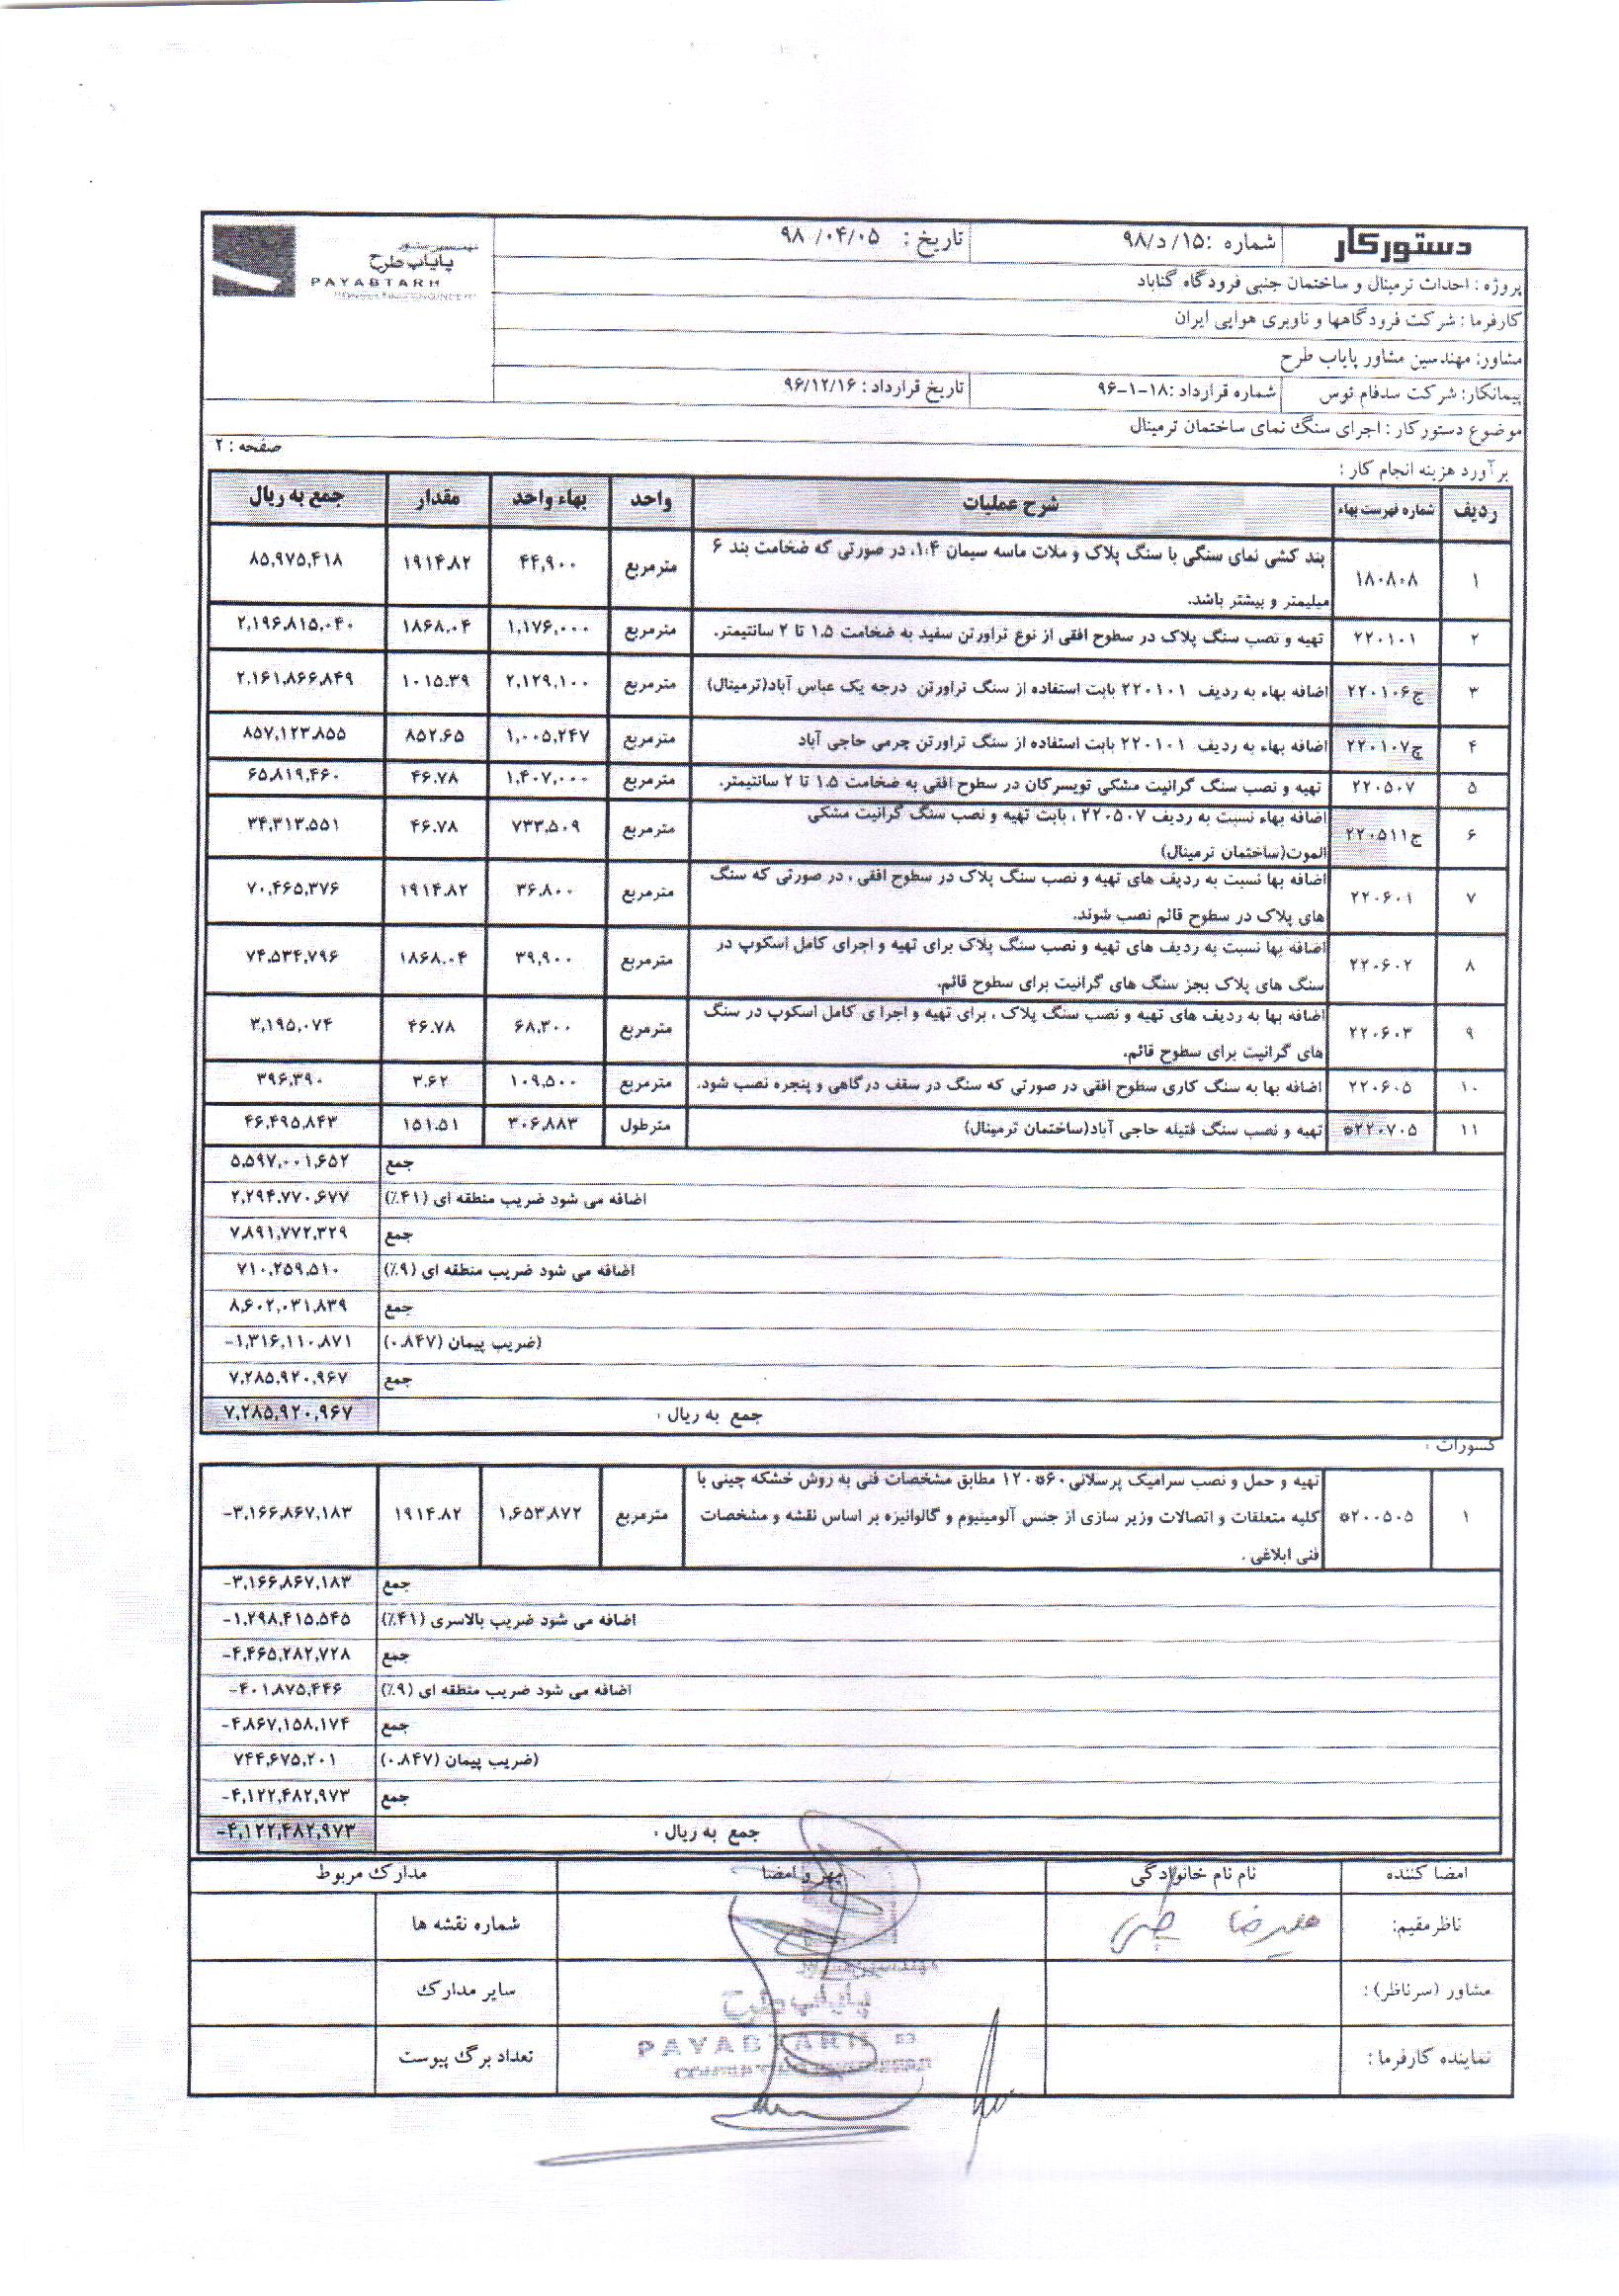 دستورکار
شماره :۱۵/ د/۹۸
تاریخ : ۹۸/۰۴/۰۵
پایاب طرح
PAYABTARH
پروژه : احداث ترمینال و ساختمان جنبی فرودگاه گناباد
کارفرما : شرکت فرودگاهها و ناوبری هوایی ایران
مشاور: مهندسین مشاور پایاب طرح
پیمانکار: شرکت سدفام توس شماره قرارداد :۱۸-۱-۹۶ تاریخ قرارداد : ۹۶/۱۲/۱۶
موضوع دستورکار : اجرای سنگ نمای ساختمان ترمینال
صفحه : ۲
برآورد هزینه انجام کار :
ردیف شماره فهرست بهاء شرح عملیات واحد بهاء واحد مقدار جمع به ریال
۱ ۱۸۰۸۰۸ بند کشی نمای سنگی با سنگ پلاک و ملات ماسه سیمان ۱:۴، در صورتی که ضخامت بند ۶
میلیمتر و بیشتر باشد. مترمربع ۴۴,۹۰۰ ۱۹۱۴.۸۲ ۸۵,۹۷۵,۴۱۸
۲ ۲۲۰۱۰۱ تهیه و نصب سنگ پلاک در سطوح افقی از نوع تراورتن سفید به ضخامت ۱.۵ تا ۲ سانتیمتر. مترمربع ۱,۱۷۶,۰۰۰ ۱۸۶۸.۰۴ ۲,۱۹۶,۸۱۵,۰۴۰
۳ ج۲۲۰۱۰۶ اضافه بهاء به ردیف ۲۲۰۱۰۱ بابت استفاده از سنگ تراورتن درجه یک عباس آباد(ترمینال) مترمربع ۲,۱۲۹,۱۰۰ ۱۰۱۵.۳۹ ۲,۱۶۱,۸۶۶,۸۴۹
۴ ج۲۲۰۱۰۷ اضافه بهاء به ردیف ۲۲۰۱۰۱ بابت استفاده از سنگ تراورتن چرمی حاجی آباد مترمربع ۱,۰۰۵,۲۴۷ ۸۵۲.۶۵ ۸۵۷,۱۲۳,۸۵۵
۵ ۲۲۰۵۰۷ تهیه و نصب سنگ گرانیت مشکی تویسرکان در سطوح افقی به ضخامت ۱.۵ تا ۲ سانتیمتر. مترمربع ۱,۴۰۷,۰۰۰ ۴۶.۷۸ ۶۵,۸۱۹,۴۶۰
۶ ج۲۲۰۵۱۱ اضافه بهاء نسبت به ردیف ۲۲۰۵۰۷ ، بابت تهیه و نصب سنگ گرانیت مشکی
الموت(ساختمان ترمینال) مترمربع ۷۳۳,۵۰۹ ۴۶.۷۸ ۳۴,۳۱۳,۵۵۱
۷ ۲۲۰۶۰۱ اضافه بها نسبت به ردیف های تهیه و نصب سنگ پلاک در سطوح افقی ، در صورتی که سنگ
های پلاک در سطوح قائم نصب شوند. مترمربع ۳۶,۸۰۰ ۱۹۱۴.۸۲ ۷۰,۴۶۵,۳۷۶
۸ ۲۲۰۶۰۲ اضافه بها نسبت به ردیف های تهیه و نصب سنگ پلاک برای تهیه و اجرای کامل اسکوپ در
سنگ های پلاک بجز سنگ های گرانیت برای سطوح قائم. مترمربع ۳۹,۹۰۰ ۱۸۶۸.۰۴ ۷۴,۵۳۴,۷۹۶
۹ ۲۲۰۶۰۳ اضافه بها به ردیف های تهیه و نصب سنگ پلاک ، برای تهیه و اجرا ی کامل اسکوپ در سنگ
های گرانیت برای سطوح قائم. مترمربع ۶۸,۳۰۰ ۴۶.۷۸ ۳,۱۹۵,۰۷۴
۱۰ ۲۲۰۶۰۵ اضافه بها به سنگ کاری سطوح افقی در صورتی که سنگ در سقف درگاهی و پنجره نصب شود. مترمربع ۱۰۹,۵۰۰ ۳.۶۲ ۳۹۶,۳۹۰
۱۱ *۲۲۰۷۰۵ تهیه و نصب سنگ فتیله حاجی آباد(ساختمان ترمینال) مترطول ۳۰۶,۸۸۳ ۱۵۱.۵۱ ۴۶,۴۹۵,۸۴۳
جمع ۵,۵۹۷,۰۰۱,۶۵۲
اضافه می شود ضریب منطقه ای (۴۱٪) ۲,۲۹۴,۷۷۰,۶۷۷
جمع ۷,۸۹۱,۷۷۲,۳۲۹
اضافه می شود ضریب منطقه ای (۹٪) ۷۱۰,۲۵۹,۵۱۰
جمع ۸,۶۰۲,۰۳۱,۸۳۹
(ضریب پیمان (۰.۸۴۷) -۱,۳۱۶,۱۱۰,۸۷۱
جمع ۷,۲۸۵,۹۲۰,۹۶۷
جمع به ریال : ۷,۲۸۵,۹۲۰,۹۶۷
کسورات :
۱ *۲۰۰۵۰۵ تهیه و حمل و نصب سرامیک پرسلانی ۶۰*۱۲۰ مطابق مشخصات فنی به روش خشکه چینی با
کلیه متعلقات و اتصالات وزیر سازی از جنس آلومینیوم و گالوانیزه بر اساس نقشه و مشخصات
فنی ابلاغی . مترمربع ۱,۶۵۳,۸۷۲ ۱۹۱۴.۸۲ -۳,۱۶۶,۸۶۷,۱۸۳
جمع -۳,۱۶۶,۸۶۷,۱۸۳
اضافه می شود ضریب بالاسری (۴۱٪) -۱,۲۹۸,۴۱۵,۵۴۵
جمع -۴,۴۶۵,۲۸۲,۷۲۸
اضافه می شود ضریب منطقه ای (۹٪) -۴۰۱,۸۷۵,۴۴۶
جمع -۴,۸۶۷,۱۵۸,۱۷۴
(ضریب پیمان (۰.۸۴۷) ۷۴۴,۶۷۵,۲۰۱
جمع -۴,۱۲۲,۴۸۲,۹۷۳
جمع به ریال : -۴,۱۲۲,۴۸۲,۹۷۳
امضا کننده نام نام خانوادگی مهر و امضا مدارک مربوط
ناظرمقیم: علیرضا شماره نقشه ها
مشاور (سرناظر) : سایر مدارک
پایاب طرح
PAYABTARH
نماینده کارفرما : تعداد برگ پیوست